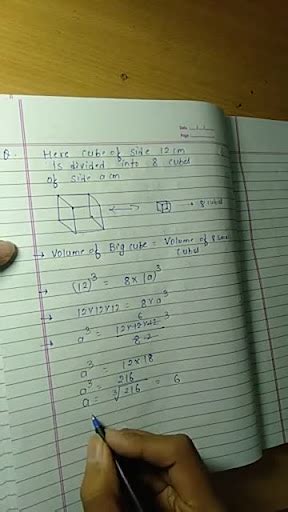 Date
Page
Q. Here cube of side 12 cm
is divided into 8 cubes
of side a cm
8 cubes
→ Volume of Big cube = Volume of 8
cubes
→ (12)³ = 8 × (a)³
→ 12×12×12 = 8×a³
→ a³ = 12×12×12
8
a³ = 12×18
a³ = 216
a = ∛216 = 6